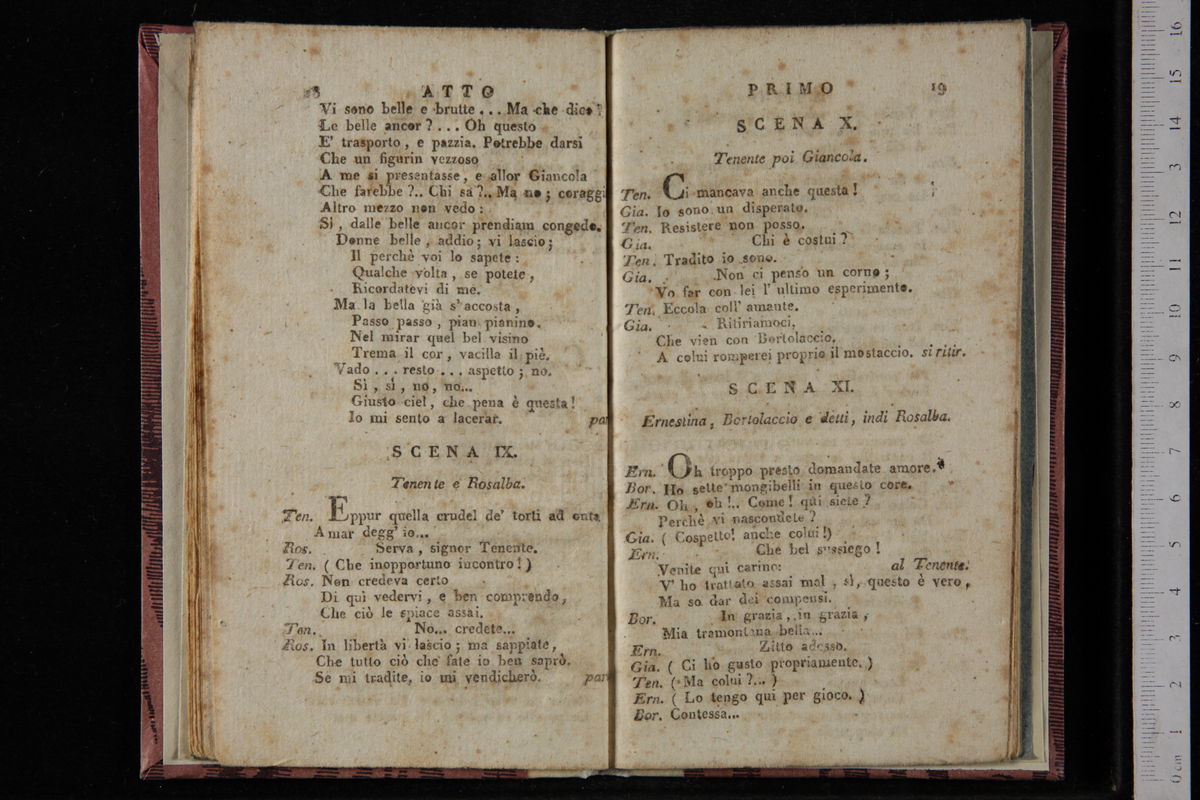 18 ATTO
Vi sono belle e brutte... Ma che dico?
Le belle ancor?... Oh questo
E' trasporto, e pazzia. Potrebbe darsi
Che un figurin vezzoso
A me si presentasse, e allor Giancola
Che farebbe?.. Chi sa?.. Ma no; coraggi
Altro mezzo non vedo:
Sì, dalle belle ancor prendiam congedo.
Donne belle, addio; vi lascio;
Il perchè voi lo sapete:
Qualche volta, se potete,
Ricordatevi di me.
Ma la bella già s'accosta,
Passo passo, pian pianino.
Nel mirar quel bel visino
Trema il cor, vacilla il piè.
Vado... resto... aspetto; no.
Sì, sì, no, no...
Giusto ciel, che pena è questa!
Io mi sento a lacerar. par
SCENA IX.
Tenente e Rosalba.
Ten. Eppur quella crudel de' torti ad onta
Amar degg' io...
Ros. Serva, signor Tenente.
Ten. (Che inopportuno incontro!)
Ros. Non credeva certo
Di qui vedervi, e ben comprendo,
Che ciò le spiace assai.
Ten. No... credete...
Ros. In libertà vi lascio; ma sappiate,
Che tutto ciò che fate io ben saprò.
Se mi tradite, io mi vendicherò. par
PRIMO 19
SCENA X.
Tenente poi Giancola.
Ten. Ci mancava anche questa!
Gia. Io sono un disperato.
Ten. Resistere non posso.
Gia. Chi è costui?
Ten. Tradito io sono.
Gia. Non ci penso un corno;
Vo far con lei l' ultimo esperimento.
Ten. Eccola coll' amante.
Gia. Ritiriamoci,
Che vien con Bortolaccio.
A colui romperei proprio il mostaccio. si ritir.
SCENA XI.
Ernestina, Bortolaccio e detti, indi Rosalba.
Ern. Oh troppo presto domandate amore.
Bor. Ho sette mongibelli in questo core.
Ern. Oh, oh!.. Come! qui siete?
Perchè vi nascondete?
Gia. (Cospetto! anche colui!)
Ern. Che bel sussiego!
Venite qui carino: al Tenente.
V' ho trattato assai mal, sì, questo è vero,
Ma so dar dei compensi.
Bor. In grazia, in grazia,
Mia tramontana bella...
Ern. Zitto adesso.
Gia. (Ci ho gusto propriamente.)
Ten. (Ma colui?...)
Ern. (Lo tengo qui per gioco.)
Bor. Contessa...